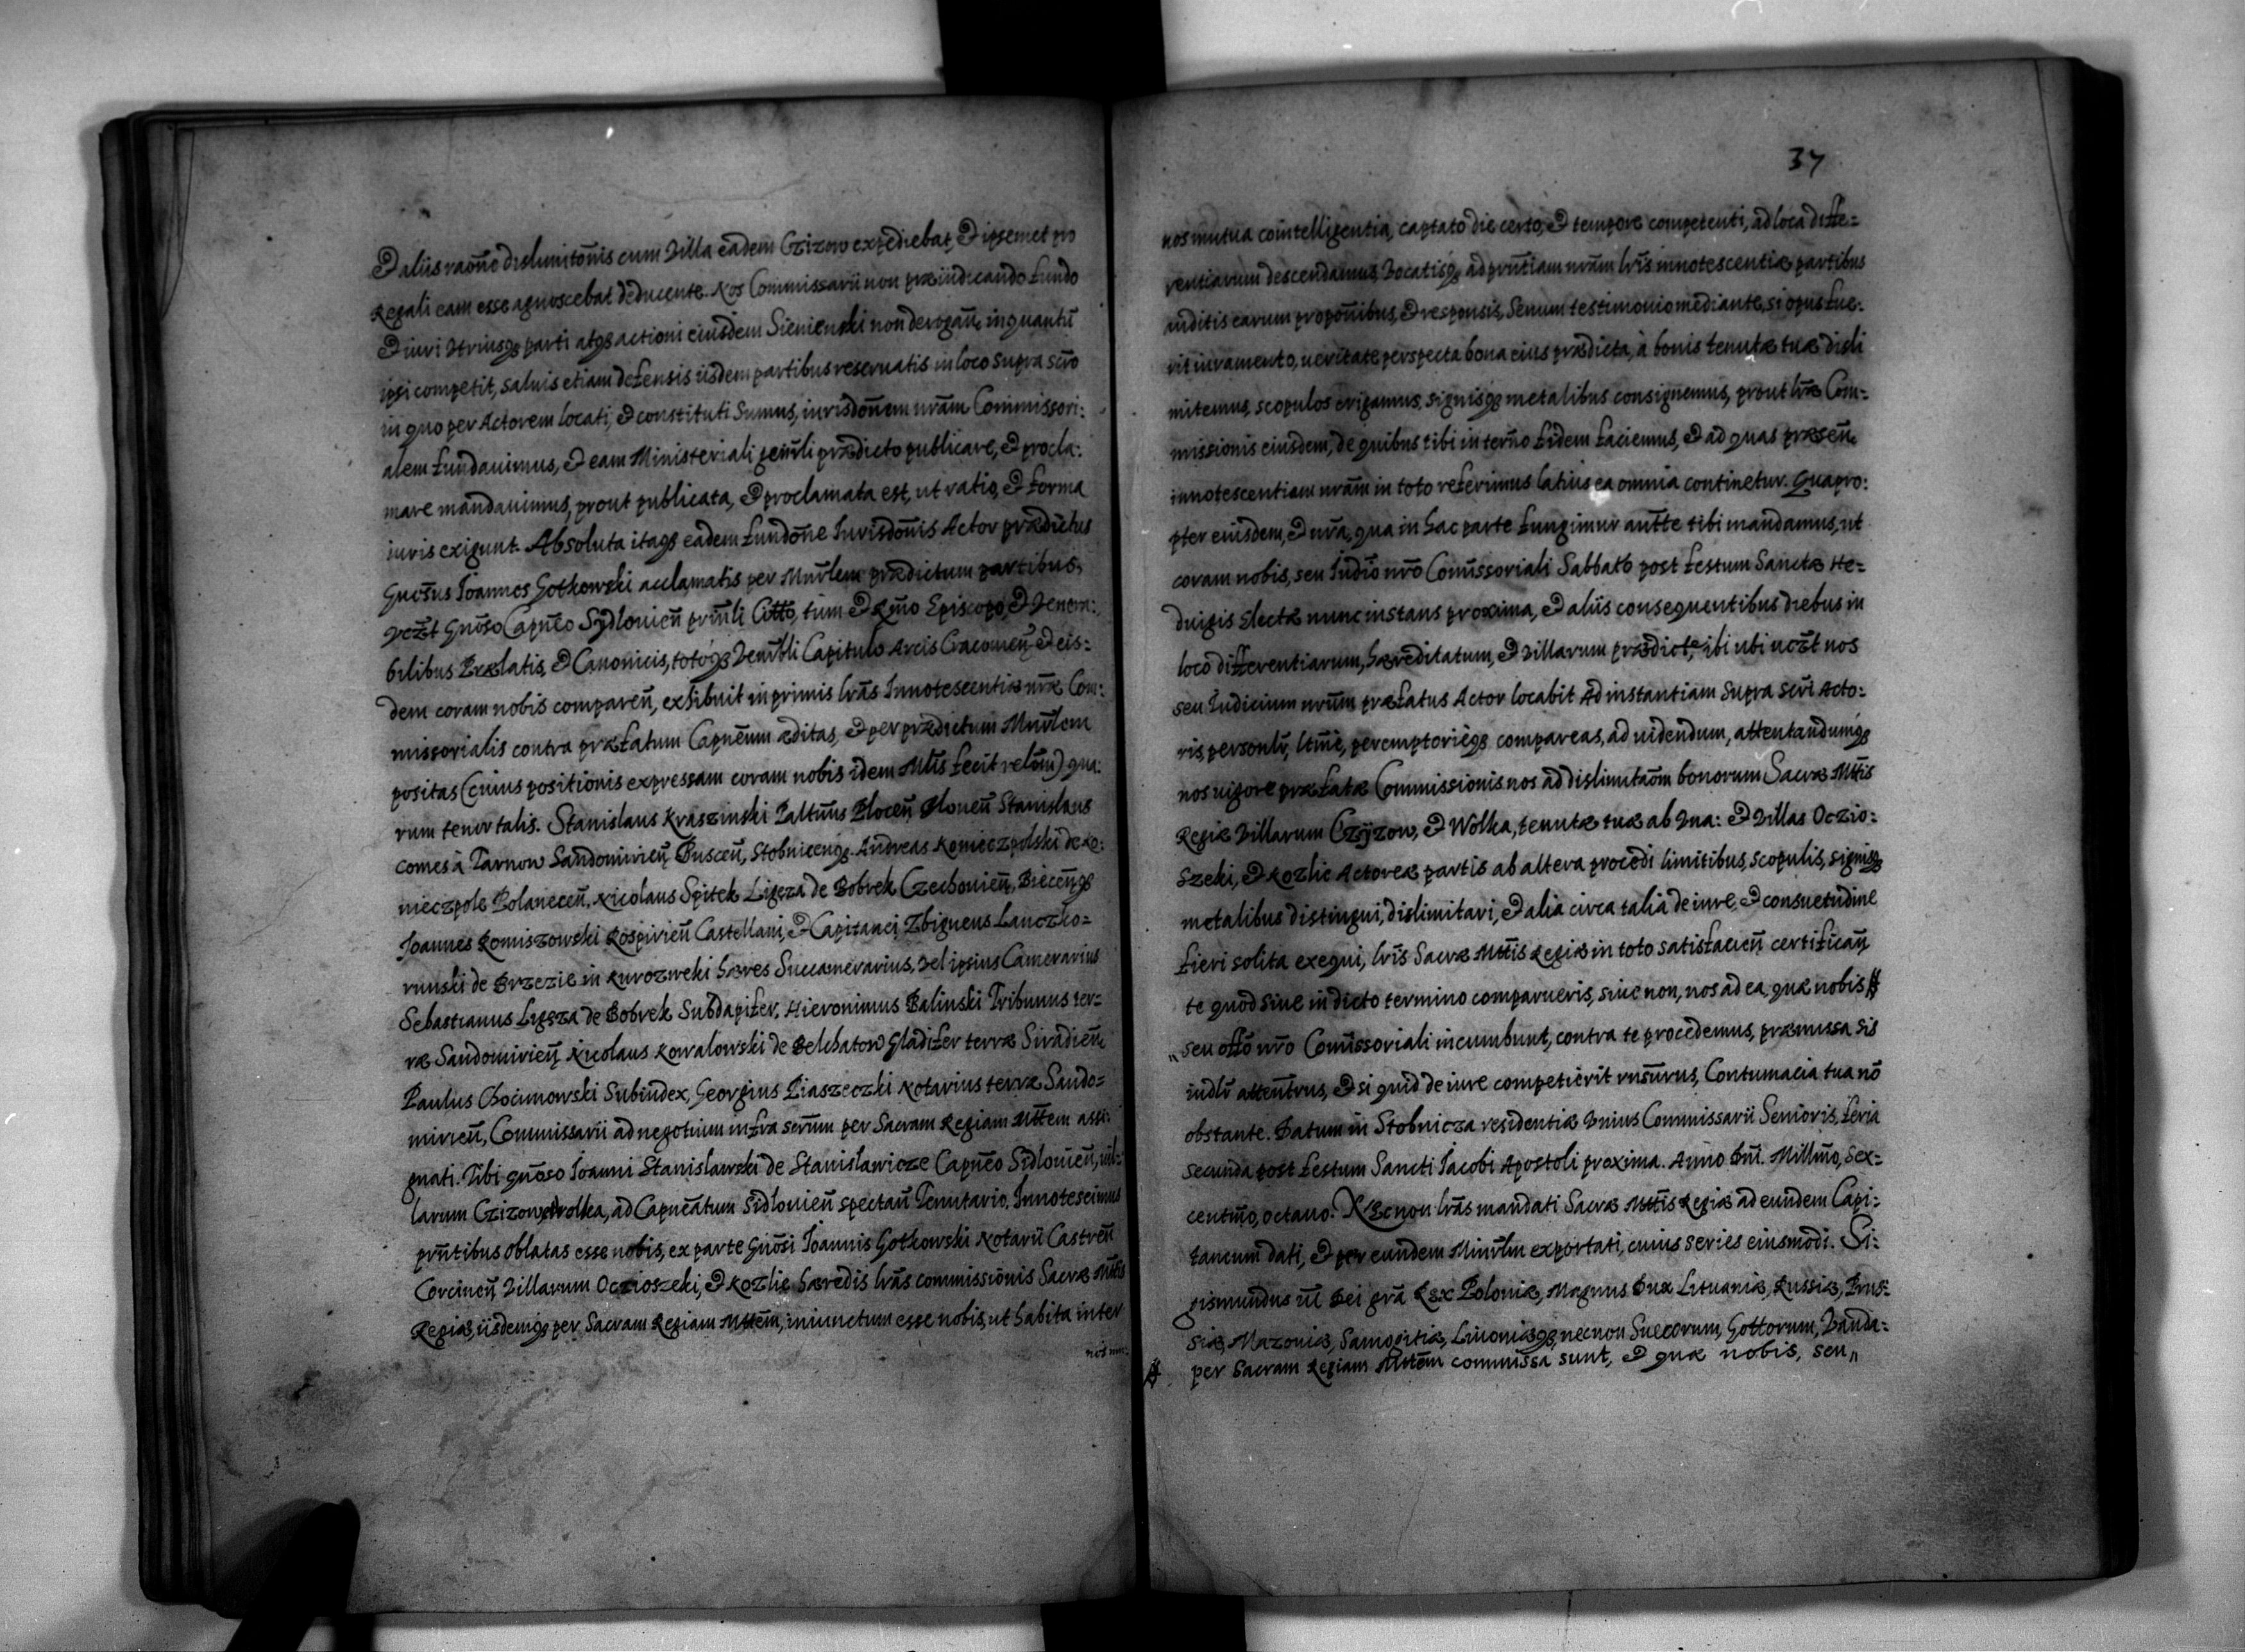 & aliis raõne dislimitõnis cum Villa eadem Czizow expediebat, & ipsemet pro
Regali eam esse agnoscebat deducente. Nos Commissarii non præiudicando fundo
& iuri Vtriusq; parti atq; actioni eiusdem Sienienski non derogañ, inquantũ
ipsi competit, saluis etiam defensis iisdem partibus reseruatis in loco supra scr̃o
in quo per Actorem locati, & constituti sumus, iurisdõnem nr̃am Commissori:
alem fundauimus, & eam Ministeriali gener̃li prædicto publicare, & procla:
mare mandauimus, prout publicata, & proclamata est, ut ratio, & forma
iuris exigunt. Absoluta itaq; eadem fundõne Iurisdõnis Actor prædictus
Gnos̃us Ioannes Gotkowski acclamatis per Mnr̃lem prædictum partibus,
vcz̃t Gnõso Capnẽo Sydlovieñ prin̄li Citt̃o, tum & Rm̃o Episcopo, & Venera:
bilibus Prælatis, & Canonicis, totoq; Venr̃bli Capitulo Arcis Cracovieñ, & eis:
dem coram nobis compareñ, exhibuit inprimis lr̃as Innotescentiæ nr̃æ Com:
missorialis contra præfatum Capnẽum æditas, & per prædictum Mnr̃lem
positas (cuius positionis expressam coram nobis idem Mlis̃ fecit relõm) qua:
rum tenor talis. Stanislaus Kraszinski Paltin̄us Plocen̄, Ploneñ Stanislaus
comes à Tarnow Sandomirien̄, Buscen̄, Stobnicen̄q; Andreas Konieczpolski de Ko:
nieczpole Polanecen̄, Nicolaus Spitek Ligeza de Bobrek Czechovien̄, Biecen̄q;
Ioannes Komiszowski Rospirien̄ Castellani, & Capitanei Zbigneus Lanczko=
runski de Brzezie in Kurozweki hæres Succamerarius, Vel ipsius Camerarius
Sebastianus Ligeza de Bobrek Subdapifer, Hieronimus Balinski Tribunus ter=
ræ Sandomirien̄, Nicolaus Kowalowski de Belchatow Gladifer terræ Siradien̄,
Paulus Chocimowski Subiudex, Georgius Piaszeczki Notarius terræ Sando=
mirien̄, Commissarii ad negotium infra scr̃um per Sacram Regiam Mtt̃em assi:
gnati. Tibi gnõso Ioanni Stanislawski de Stanislawicze Capnẽo Sidlovien̄, vil:
larum Czizow & Wolka, ad Capneãtum Sidlovien̄ spectan̄ Tenutario. Innotescimus
prñtibus oblatas esse nobis, ex parte Gnõsi Ioannis Gotkowski Notarii Castren̄
Corcinen̄ Villarum Oczioszeki, & Kozlie hæredis lr̃as commissionis Sacræ Mtt̃is
Regiæ, iisdemq; per Sacram Regiam Mtt̃em, iniunctum esse nobis, ut habita inter
37
nos mutua cointelligentia, captato die certo, & tempore competenti, ad loca diffe=
rentiarum descendamus, Vocatisq; ad prñtiam nr̃am lr̃is innotescentiæ partibus
auditis earum propõnibus, & responsis, Senum testimonio mediante, si opus fue:
rit iuramento, ueritate perspecta bona eius prædicta, à bonis tenutæ tuæ disli
mitemus, scopulos erigamus, signisq; metalibus consignemus, prout lr̃æ Com=
missionis eiusdem, de quibus tibi in term̃o fidem faciemus, & ad quas præsen̄,
innotescentiam nr̃am in toto referimus latius ea omnia continetur. Quapro:
pter eiusdem, & nr̃a, qua in hac parte fungimur autt̃e tibi mandamus, ut
coram nobis, seu Iudiõ nr̃o Com̃issoriali Sabbato post festum Sanctæ He=
duigis Electæ nunc instans proxima, & aliis consequentibus diebus in
loco differentiarum, hæreditatum, & Villarum prædict:, ibi ubi ucz̃t nos
seu Iudicium nr̃um præfatus Actor locabit Ad instantiam supra scr̃i Acto=
ris, personlr̃, ltim̃e, peremptorieq; compareas, ad uidendum, attentandumq;
nos uigore præfatæ Commissionis nos ad dislimitaõm bonorum Sacræ Mtt̃is
Regiæ Villarum Czÿzow, & Wolka, tenutæ tuæ ab Vna: & Villas Oczio=
szeki, & Kozlie Actoreæ partis ab altera procedi limitibus, scopulis, signisq;
metalibus distingui, dislimitari, & alia circa talia de iure, & consuetudine
fieri solita exequi, lr̃is Sacræ Mtt̃is Regiæ in toto satisfacien̄ certifican̄
te quod siue in dicto termino comparueris, siue non, nos ad ea, quæ nobis #
„ seu offõ nr̃o Com̃issoriali incumbunt, contra te procedemus, præmissa sis
iudlr̃ attent̃rus, & si quid de iure competierit rnsũrus, Contumacia tua nõ
obstante. Datum in Stobnicza residentiæ Vnius Commissarii Senioris, feria
secunda post festum Sancti Iacobi Apostoli proxima. Anno Dñi. Millim̃o, Sex=
centm̃o, octauo. Necnon lr̃as mandati Sacræ Mtt̃is Regiæ ad eundem Capi:
taneum dati, & per eundem Minr̃lm exportati, cuius series eiusmodi. Si:
gismundus iii Dei grã Rex Poloniæ, Magnus Dux Lituaniæ, Russiæ, Prus:
siæ, Mazoniæ, Samogitiæ, Liuoniæq; necnon Suecorum, Gottorum, Vanda=
# per Sacram Regiam Mttẽm commissa sunt, & quæ nobis, seu „